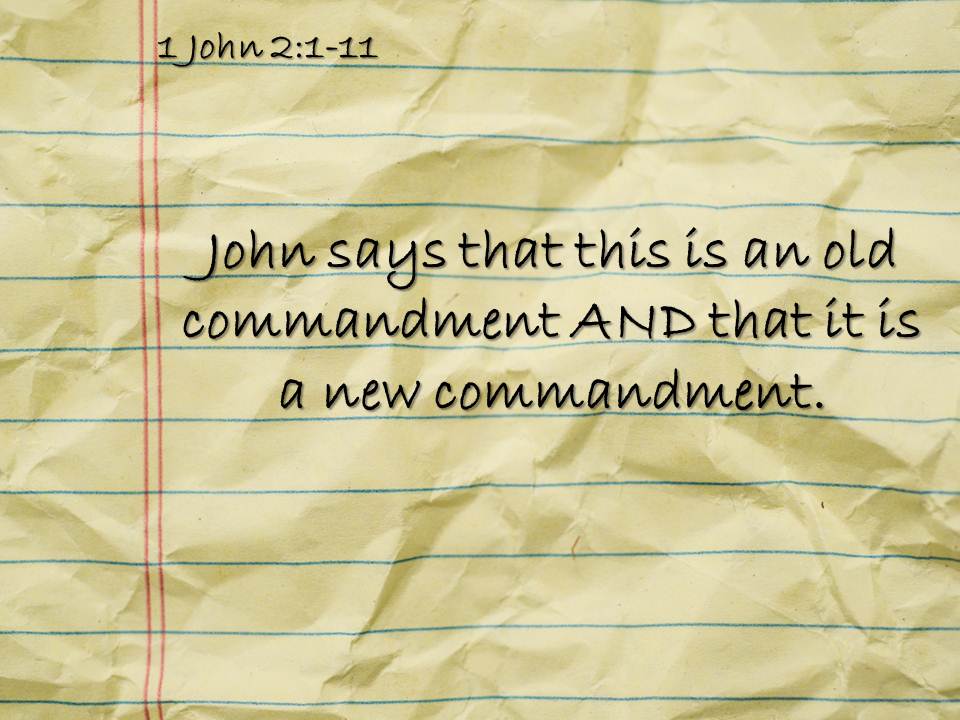 1 John 2:1-11
John says that this is an old
commandment AND that it is
a new commandment.